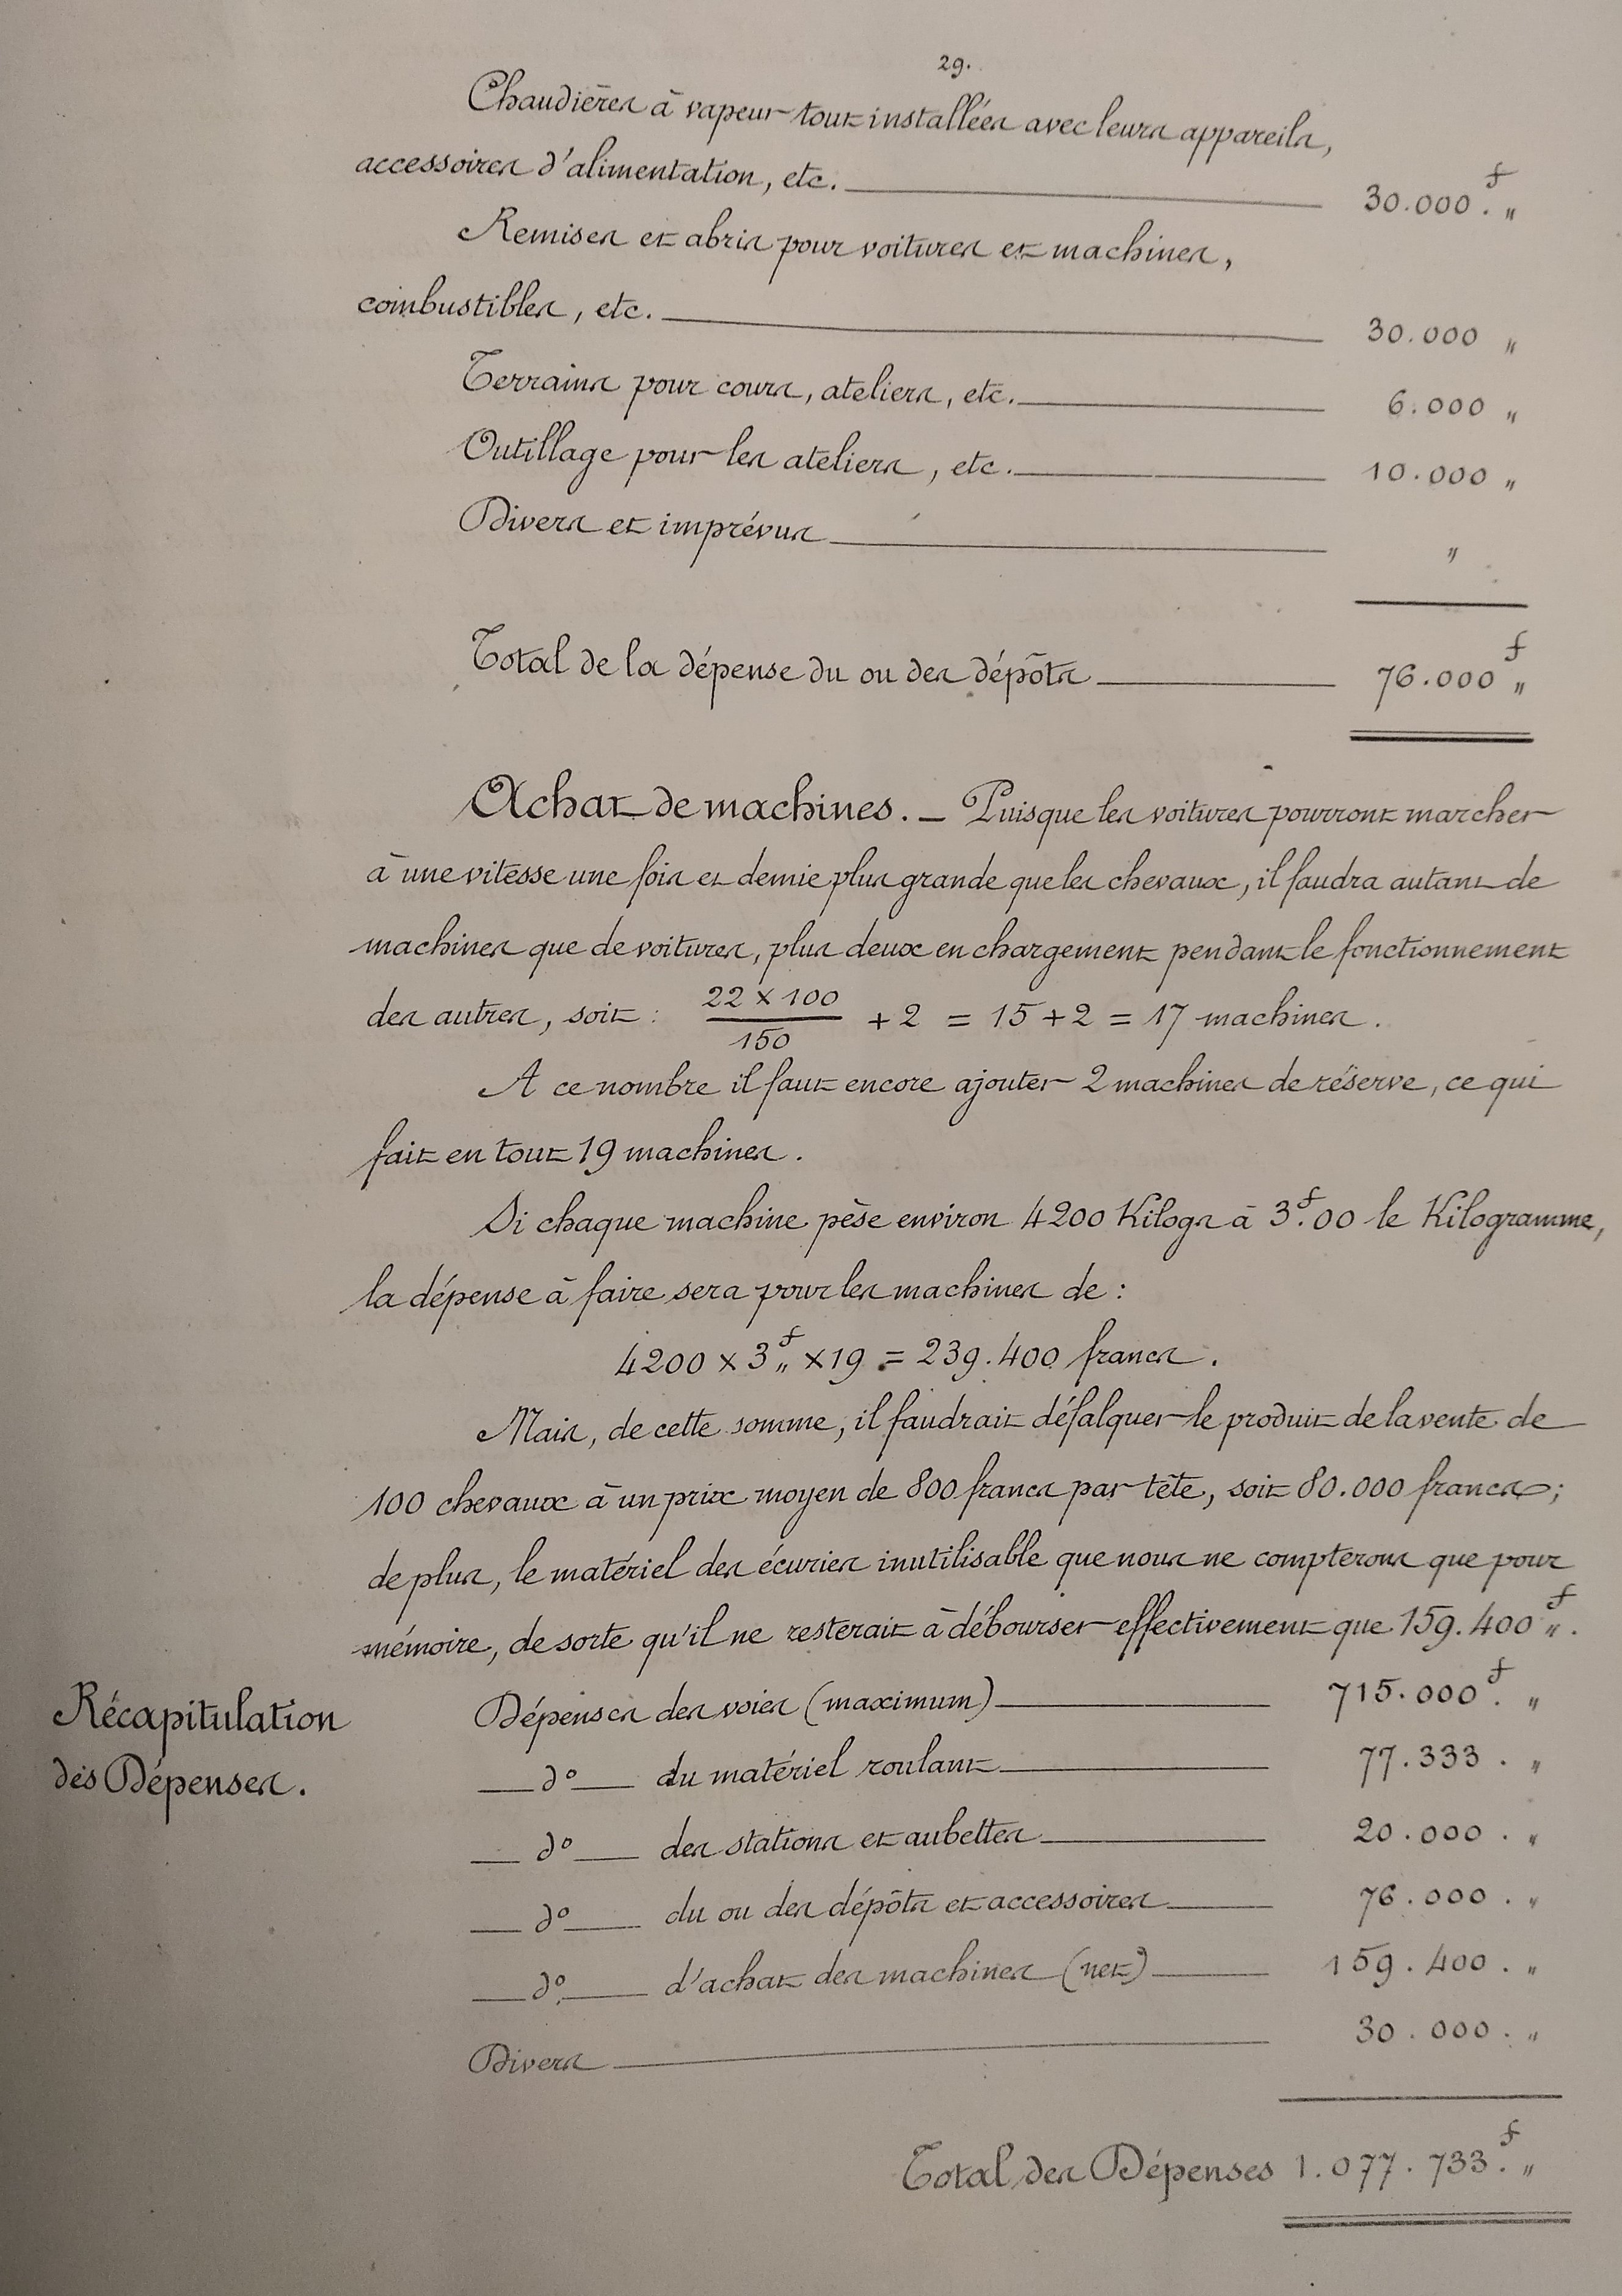 29.
Chaudières à vapeur tout installées avec leurs appareils,
accessoires d'alimentation, etc. 30.000.f "
Remises et abris pour voitures et machines,
combustibles, etc. 30.000 "
Terrains pour cours, ateliers, etc. 6.000 "
Outillage pour les ateliers, etc. 10.000 "
Divers et imprévus "
Total de la dépense du ou des dépôts 76.000 f "
Achat de machines. — Puisque les voitures pourront marcher
à une vitesse une fois et demie plus grande que les chevaux, il faudra autant de
machines que de voitures, plus deux en chargement pendant le fonctionnement
des autres, soit : 22 × 100 / 150 + 2 = 15 + 2 = 17 machines.
A ce nombre il faut encore ajouter 2 machines de réserve, ce qui
fait en tout 19 machines.
Si chaque machine pèse environ 4200 Kilogs à 3f.00 le Kilogramme,
la dépense à faire sera pour les machines de :
4200 × 3f" × 19 = 239.400 francs.
Mais, de cette somme, il faudrait défalquer le produit de la vente de
100 chevaux à un prix moyen de 800 francs par tête, soit 80.000 francs;
de plus, le matériel des écuries inutilisable que nous ne compterons que pour
mémoire, de sorte qu'il ne resterait à débourser effectivement que 159.400 f".
Récapitulation
des Dépenses.
Dépenses des voies (maximum) 715.000 f. "
— d° — du matériel roulant 77.333. "
— d° — des stations et aubettes 20.000. "
— d° — du ou des dépôts et accessoires 76.000. "
— d° — d'achat des machines (net) 159.400. "
Divers 30.000. "
Total des Dépenses 1.077.733.f "